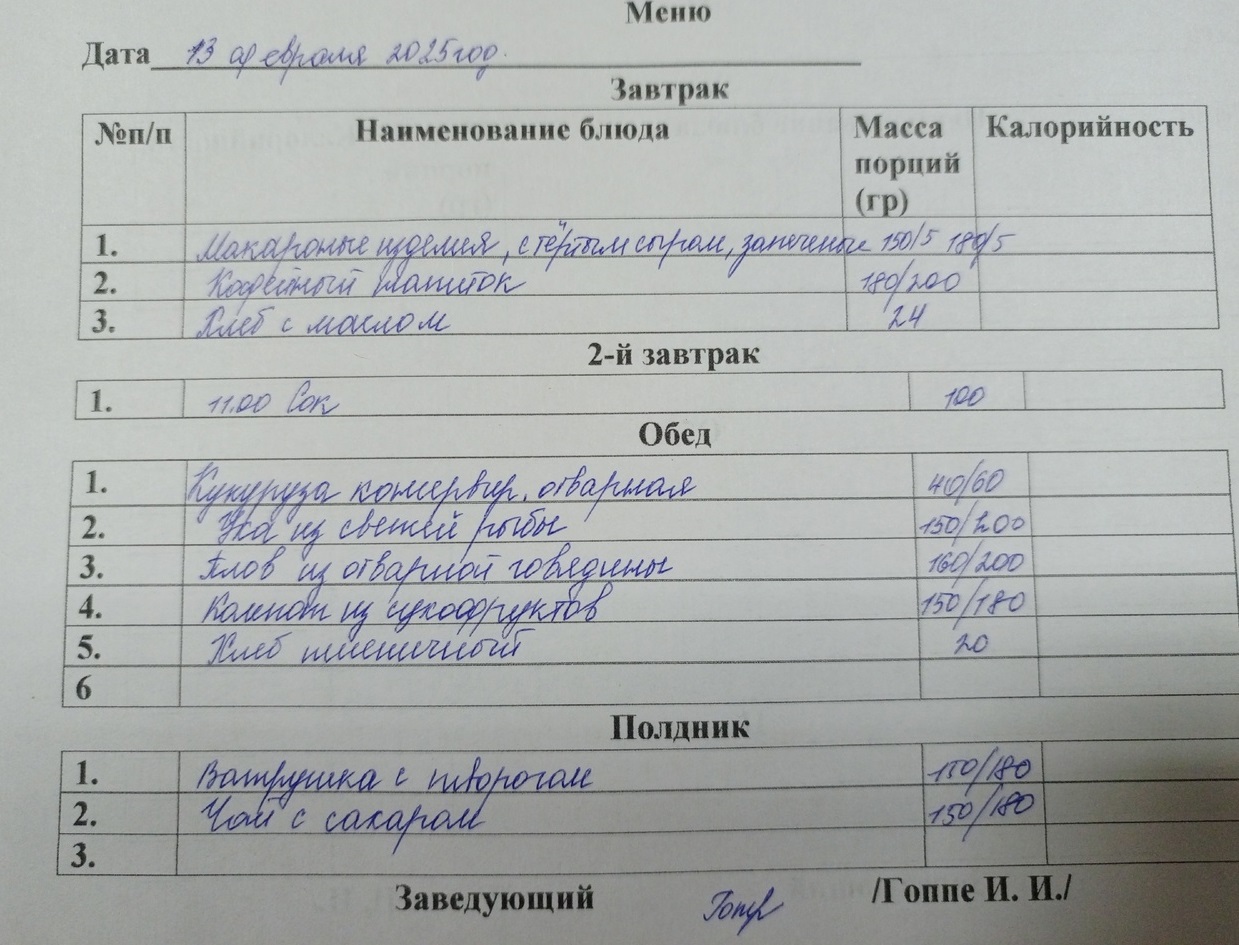 Меню
Дата 13 февраля 2025год.
Завтрак
№п/п Наименование блюда Масса порций (гр) Калорийность
1. Макароные изделия, с тёртым сыром, запеченые 150/5 180/5
2. Кофейный напиток 180/200
3. Хлеб с маслом 24
2-й завтрак
1. 11.00 Сок 100
Обед
1. Кукуруза консервир. отварная 40/60
2. Уха из свежей рыбы 150/200
3. Плов из отварной говядины 160/200
4. Компот из сухофруктов 150/180
5. Хлеб пшеничный 20
6
Полдник
1. Ватрушка с творогом 150/180
2. Чай с сахаром 150/180
3.
Заведующий /Гоппе И. И./